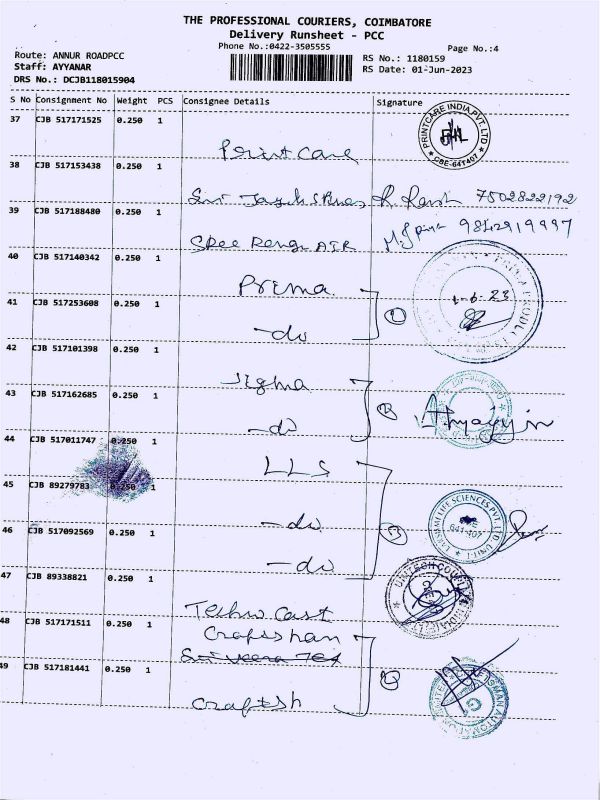 THE PROFESSIONAL COURIERS, COIMBATORE
Delivery Runsheet - PCC
Phone No.:0422-3505555
Page No.:4
Route: ANNUR ROADPCC
Staff: AYYANAR
DRS No.: DCJB118015904
RS No.: 1180159
RS Date: 01-Jun-2023
S No Consignment No Weight PCS Consignee Details Signature
37 CJB 517171525 0.250 1
Print Care
PRINTCARE INDIA PVT. LTD
CBE-641407
38 CJB 517153438 0.250 1
Sri 7502822192
39 CJB 517188480 0.250 1
Sree Renga AIR 9842919997
40 CJB 517140342 0.250 1
Prima
1-6-23
41 CJB 517253608 0.250 1
-do
1
42 CJB 517101398 0.250 1
Sigma
43 CJB 517162685 0.250 1
-do
2
44 CJB 517011747 0.250 1
LLS
45 CJB 89279783 0.250 1
-do
3
46 CJB 517092569 0.250 1
-do
LIFE SCIENCES PVT. LTD. UNIT-I
641407
47 CJB 89338821 0.250 1
Techno Cast
48 CJB 517171511 0.250 1
Craftsman
Sri Veera Tex
49 CJB 517181441 0.250 1
Craftsh